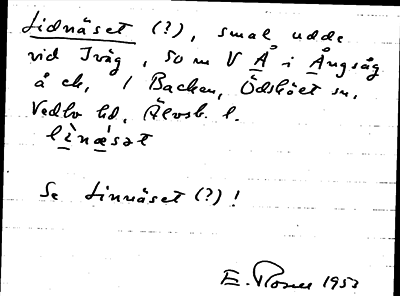 Lidnäset (?), smal udde
vid Iväg, som V Å i Ängsåg
å ek, 1 Backen, Ödskölt sn,
Vedbo hd, Älvsb. l.
lìnæ̀sət
Se Linnäset (?)!
E. Rosell 1953